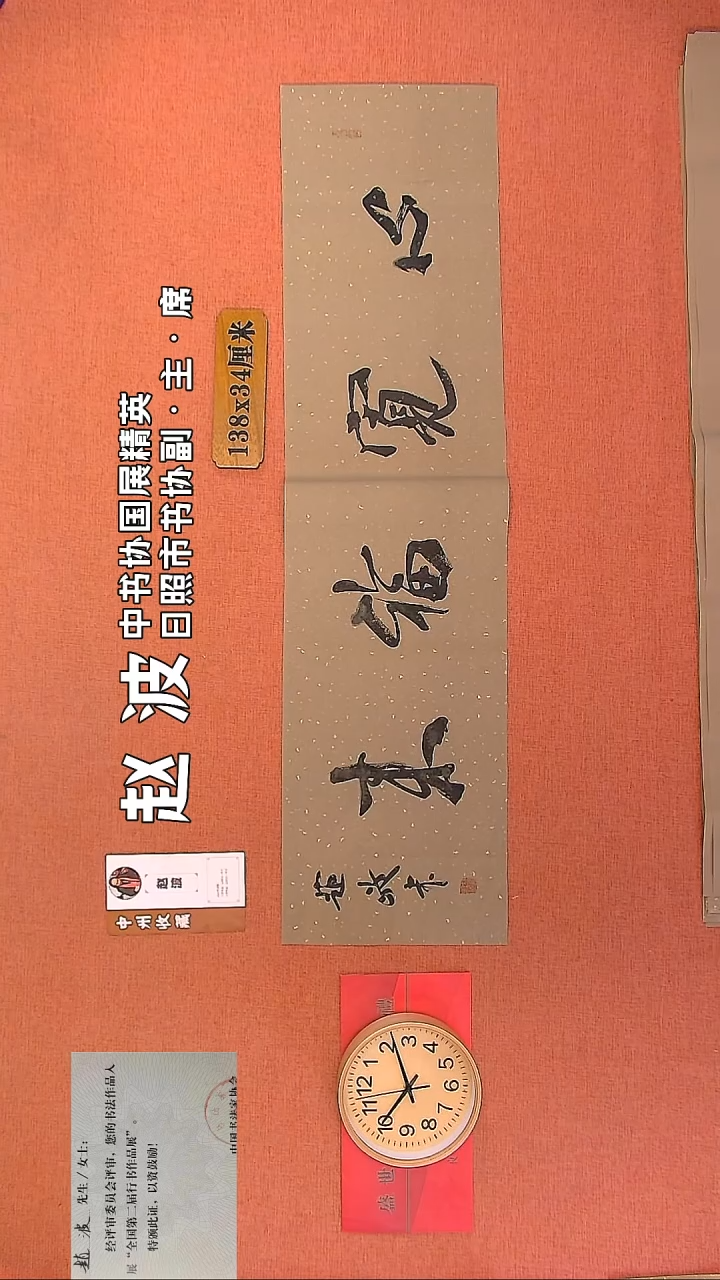 赵波
中书协国展精英
日照市书协副·主·席
138x34厘米
心寬福来
趙波书
赵波
中州收藏
赵波 先生/女士:
经评审委员会评审，您的书法作品入
展“全国第二届行书作品展”。
特颁此证，以资鼓励！
中国书法家协会
盛世
12
1
2
3
4
5
6
7
8
9
10
11